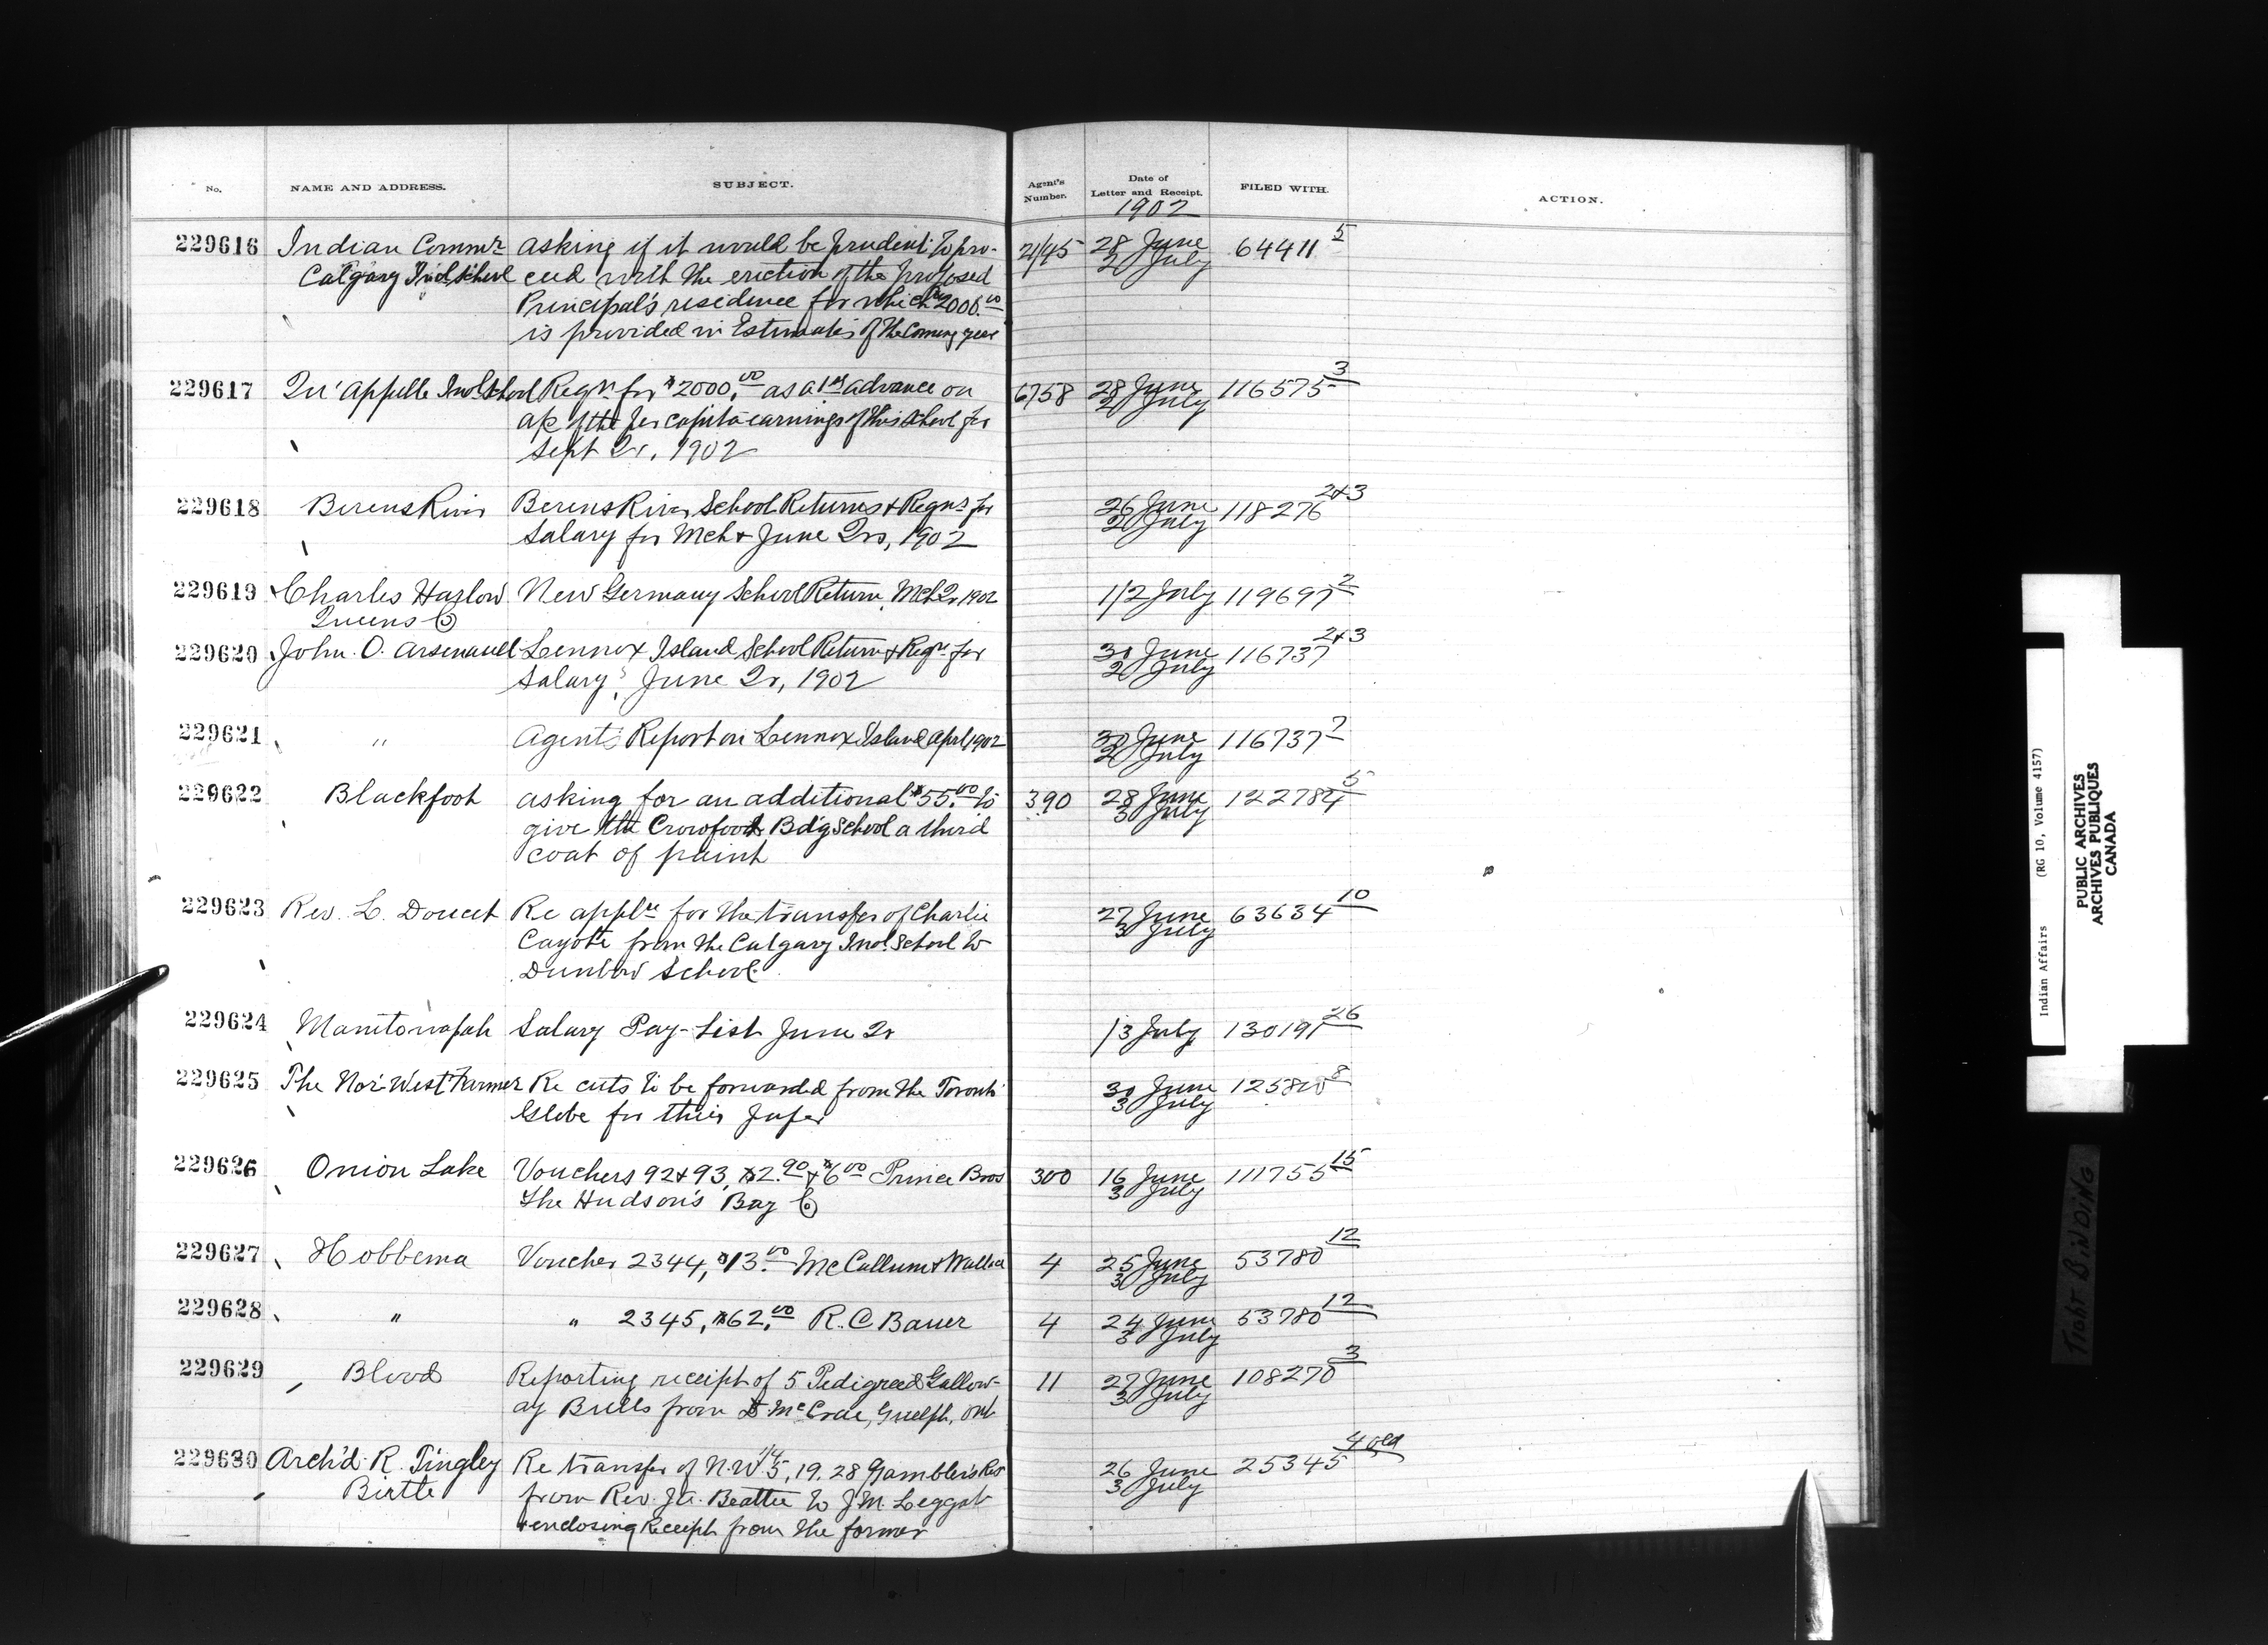 No. NAME AND ADDRESS. SUBJECT. Agent's Number. Date of Letter and Receipt. FILED WITH. ACTION.
1902
229616 Indian Commr asking if it would be prudent to pro- 21/45 28 June 64411 5
Calgary Ind. School ceed with the erection of the proposed 2 July
Principal's residence for which $2000.00
is provided in Estimates of the coming year
229617 Qu'appelle Ind. School Reqn for $2000.00 as a 1st advance on 6758 28 June 116575 3
a/c of the per capita earnings of this school for 2 July
Sept Qr, 1902
229618 Berens River Berens River School Returns & Reqns for 26 June 118276 2&3
Salary for Mch & June Qrs, 1902 2 July
229619 Charles Harlow New Germany School Return, Mch Qr 1902 1/2 July 119697 2
Queens Co
229620 John O. Arsenault Lennox Island School Return & Reqn for 30 June 116737 2&3
Salary, June Qr, 1902 2 July
229621 " Agent's Report on Lennox Island April 1902 30 June 116737 7
2 July
229622 Blackfoot asking for an additional $55.00 to 390 28 June 122784 5
give the Crowfoot Bd'g School a third 3 July
coat of paint
229623 Rev. L. Doucet Re appln for the transfer of Charlie 27 June 63634 10
Cayote from the Calgary Ind. School to 3 July
Dunbow School.
229624 Manitowapah Salary Pay-List June Qr 1/3 July 130191 26
229625 The Nor'West Farmer Re cuts to be forwarded from the Toronto 30 June 8
Globe for their paper 3 July
229626 Onion Lake Vouchers 92 & 93, $2.90 & $6.00 Prince Bros 300 16 June 111755 15
The Hudson's Bay Co 3 July
229627 Hobbema Voucher 2344, $13.00 McCallum & Wallace 4 25 June 53780 12
3 July
229628 " " 2345, $62.00 R.C Bauer 4 24 June 53780 12
3 July
229629 Blood Reporting receipt of 5 Pedigreed Gallow- 11 27 June 108270 3
ay Bulls from D. McCrae, Guelph, Ont 3 July
229630 Arch'd R. Tingley Re transfer of N.W 1/4 5, 19. 28 Gambler's Res 26 June 25345 4 old
Birtle from Rev. J.A. Beattie to J.M. Leggat 3 July
& enclosing Receipt from the former
Indian Affairs (RG 10, Volume 4157)
PUBLIC ARCHIVES
ARCHIVES PUBLIQUES
CANADA
TIGHT BINDING